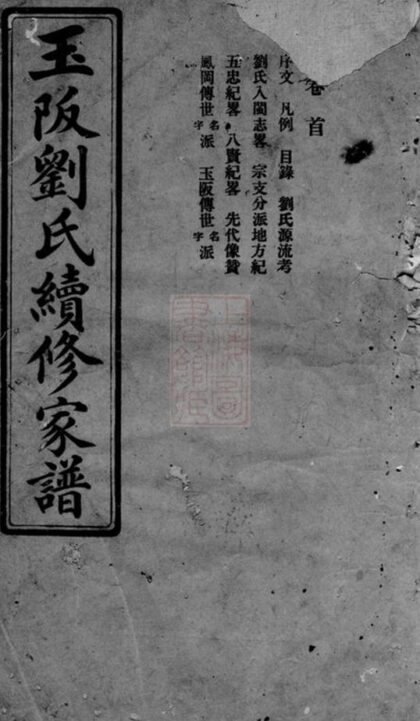 玉阪劉氏續修家譜
卷首
序文 凡例 目錄 劉氏源流考
劉氏入閩志畧 宗支分派地方紀
五忠紀畧 八賢紀畧 先代像贊
鳳岡傳世名字派 玉阪傳世名字派
上海圖書館藏